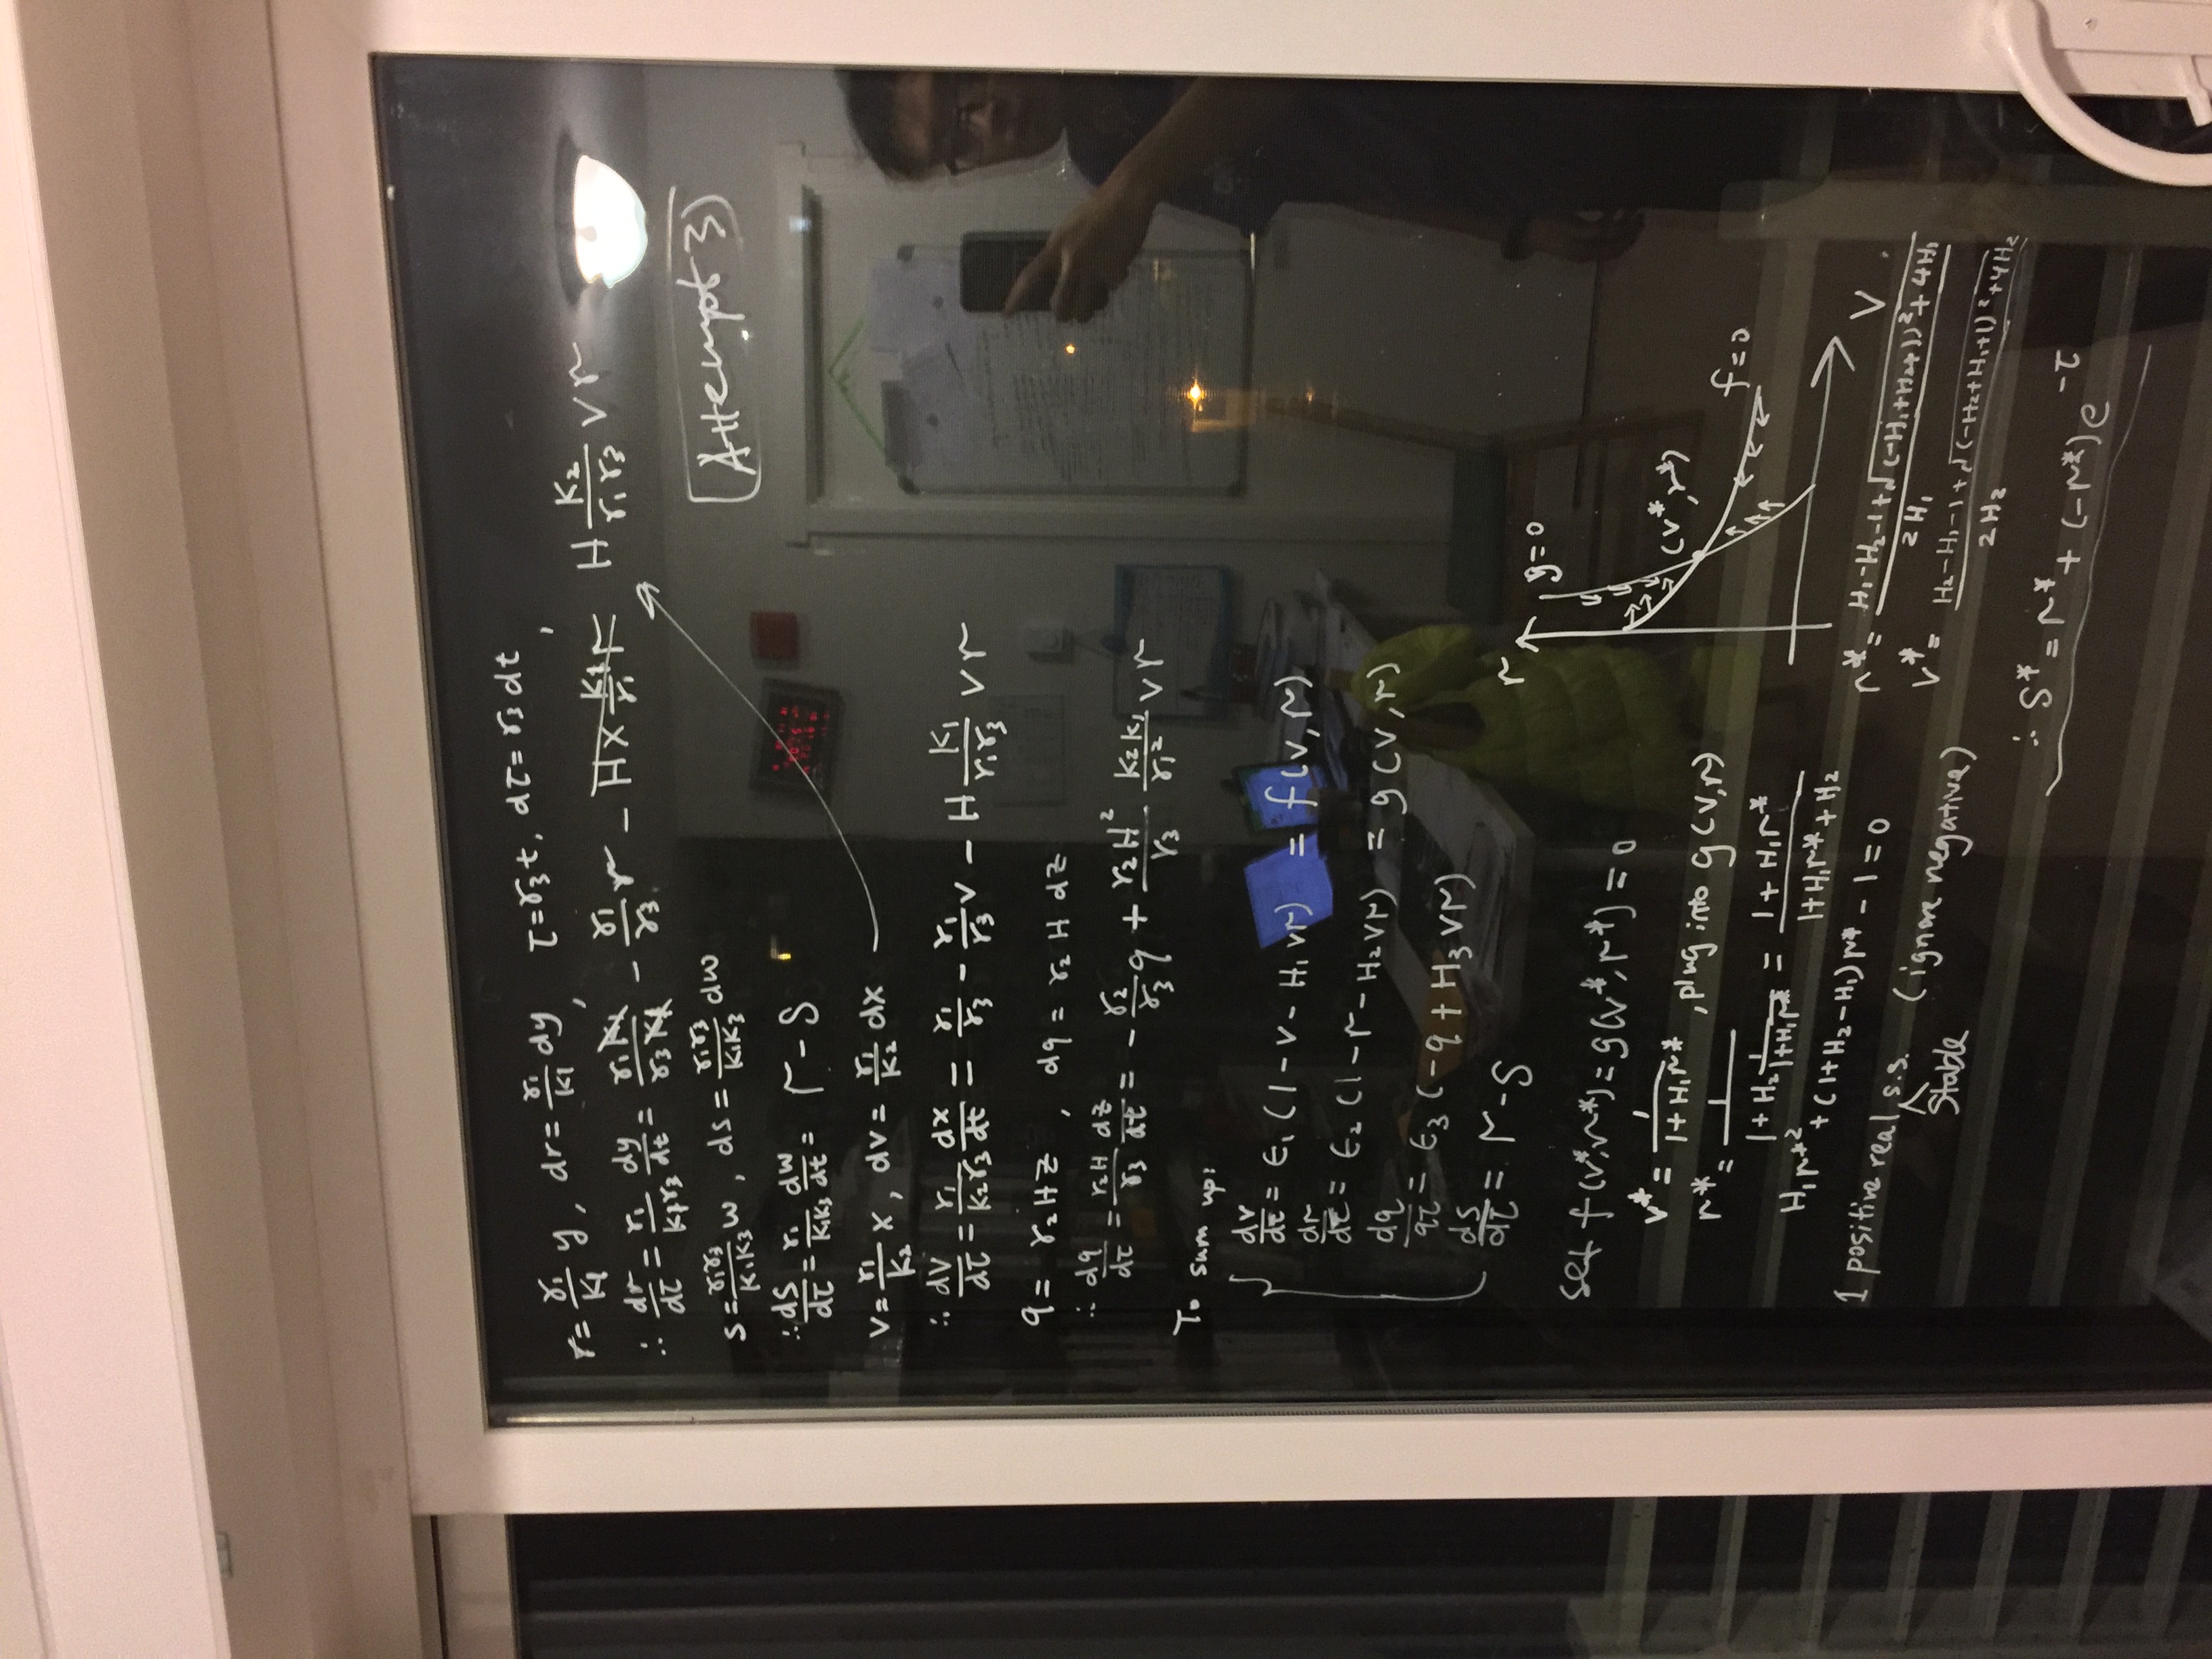 r = γ₁/K₁ y, dr = γ₁/K₁ dy, τ = γ₃t, dτ = γ₃ dt,
∴ dr/dτ = γ₁/(K₁γ₃) dy/dt = γ₁K₁/(γ₃K₁) - γ₁/γ₃ r - H x K₁/γ₁ r H K₂/(γ₁γ₃) v r
Attempt 3
s = γ₁γ₃/(K₁K₃) w, ds = γ₁γ₃/(K₁K₃) dw
∴ ds/dτ = γ₁/(K₁K₃) dw/dt = r - s
v = γ₁/K₂ x, dv = γ₁/K₂ dx
∴ dv/dτ = γ₁/(K₂γ₃) dx/dt = γ₁/γ₃ - γ₁/γ₃ v - H K₁/(γ₁γ₃) v r
q = γ₂ H z, dq = γ₂ H dz
∴ dq/dτ = γ₂H/γ₃ dz/dt = - γ₂/γ₃ q + γ₂H²/γ₃ K₂K₁/γ₁² v r
To sum up:
dv/dτ = ε₁ (1 - v - H₁ v r) = f(v, r)
dr/dτ = ε₂ (1 - r - H₂ v r) = g(v, r)
dq/qτ = ε₃ (-q + H₃ v r)
ds/dτ = r - s
set f(v*, r*) = g(v*, r*) = 0
v* = 1/(1 + H₁r*), plug into g(v, r)
r* = 1/(1 + H₂ 1/(1+H₁r*)) = (1 + H₁r*)/(1 + H₁r* + H₂)
H₁r*² + (1 + H₂ - H₁) r* - 1 = 0
1 positive real s.s. (ignore negative)
Stable
r
g = 0
(v*, r*)
f = 0
v
r* = (H₁ - H₂ - 1 + √((-H₁ + H₂ + 1)² + 4H₁))/(2H₁)
v* = (H₂ - H₁ - 1 + √((-H₂ + H₁ + 1)² + 4H₂))/(2H₂)
∴ s* = r* + (-r*) e^(-τ)